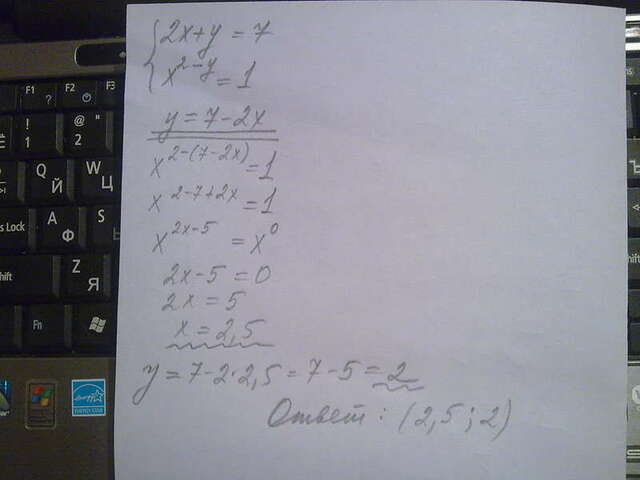 2x+y=7
x^{2-y}=1
y=7-2x
x^{2-(7-2x)}=1
x^{2-7+2x}=1
x^{2x-5}=x^0
2x-5=0
2x=5
x=2,5
y=7-2·2,5=7-5=2
Ответ: (2,5;2)
F1 F2 F3
! 1 @ " 2
Q Й W Ц
s Lock A Ф S
hift Z Я
Fn
ENERGY STAR